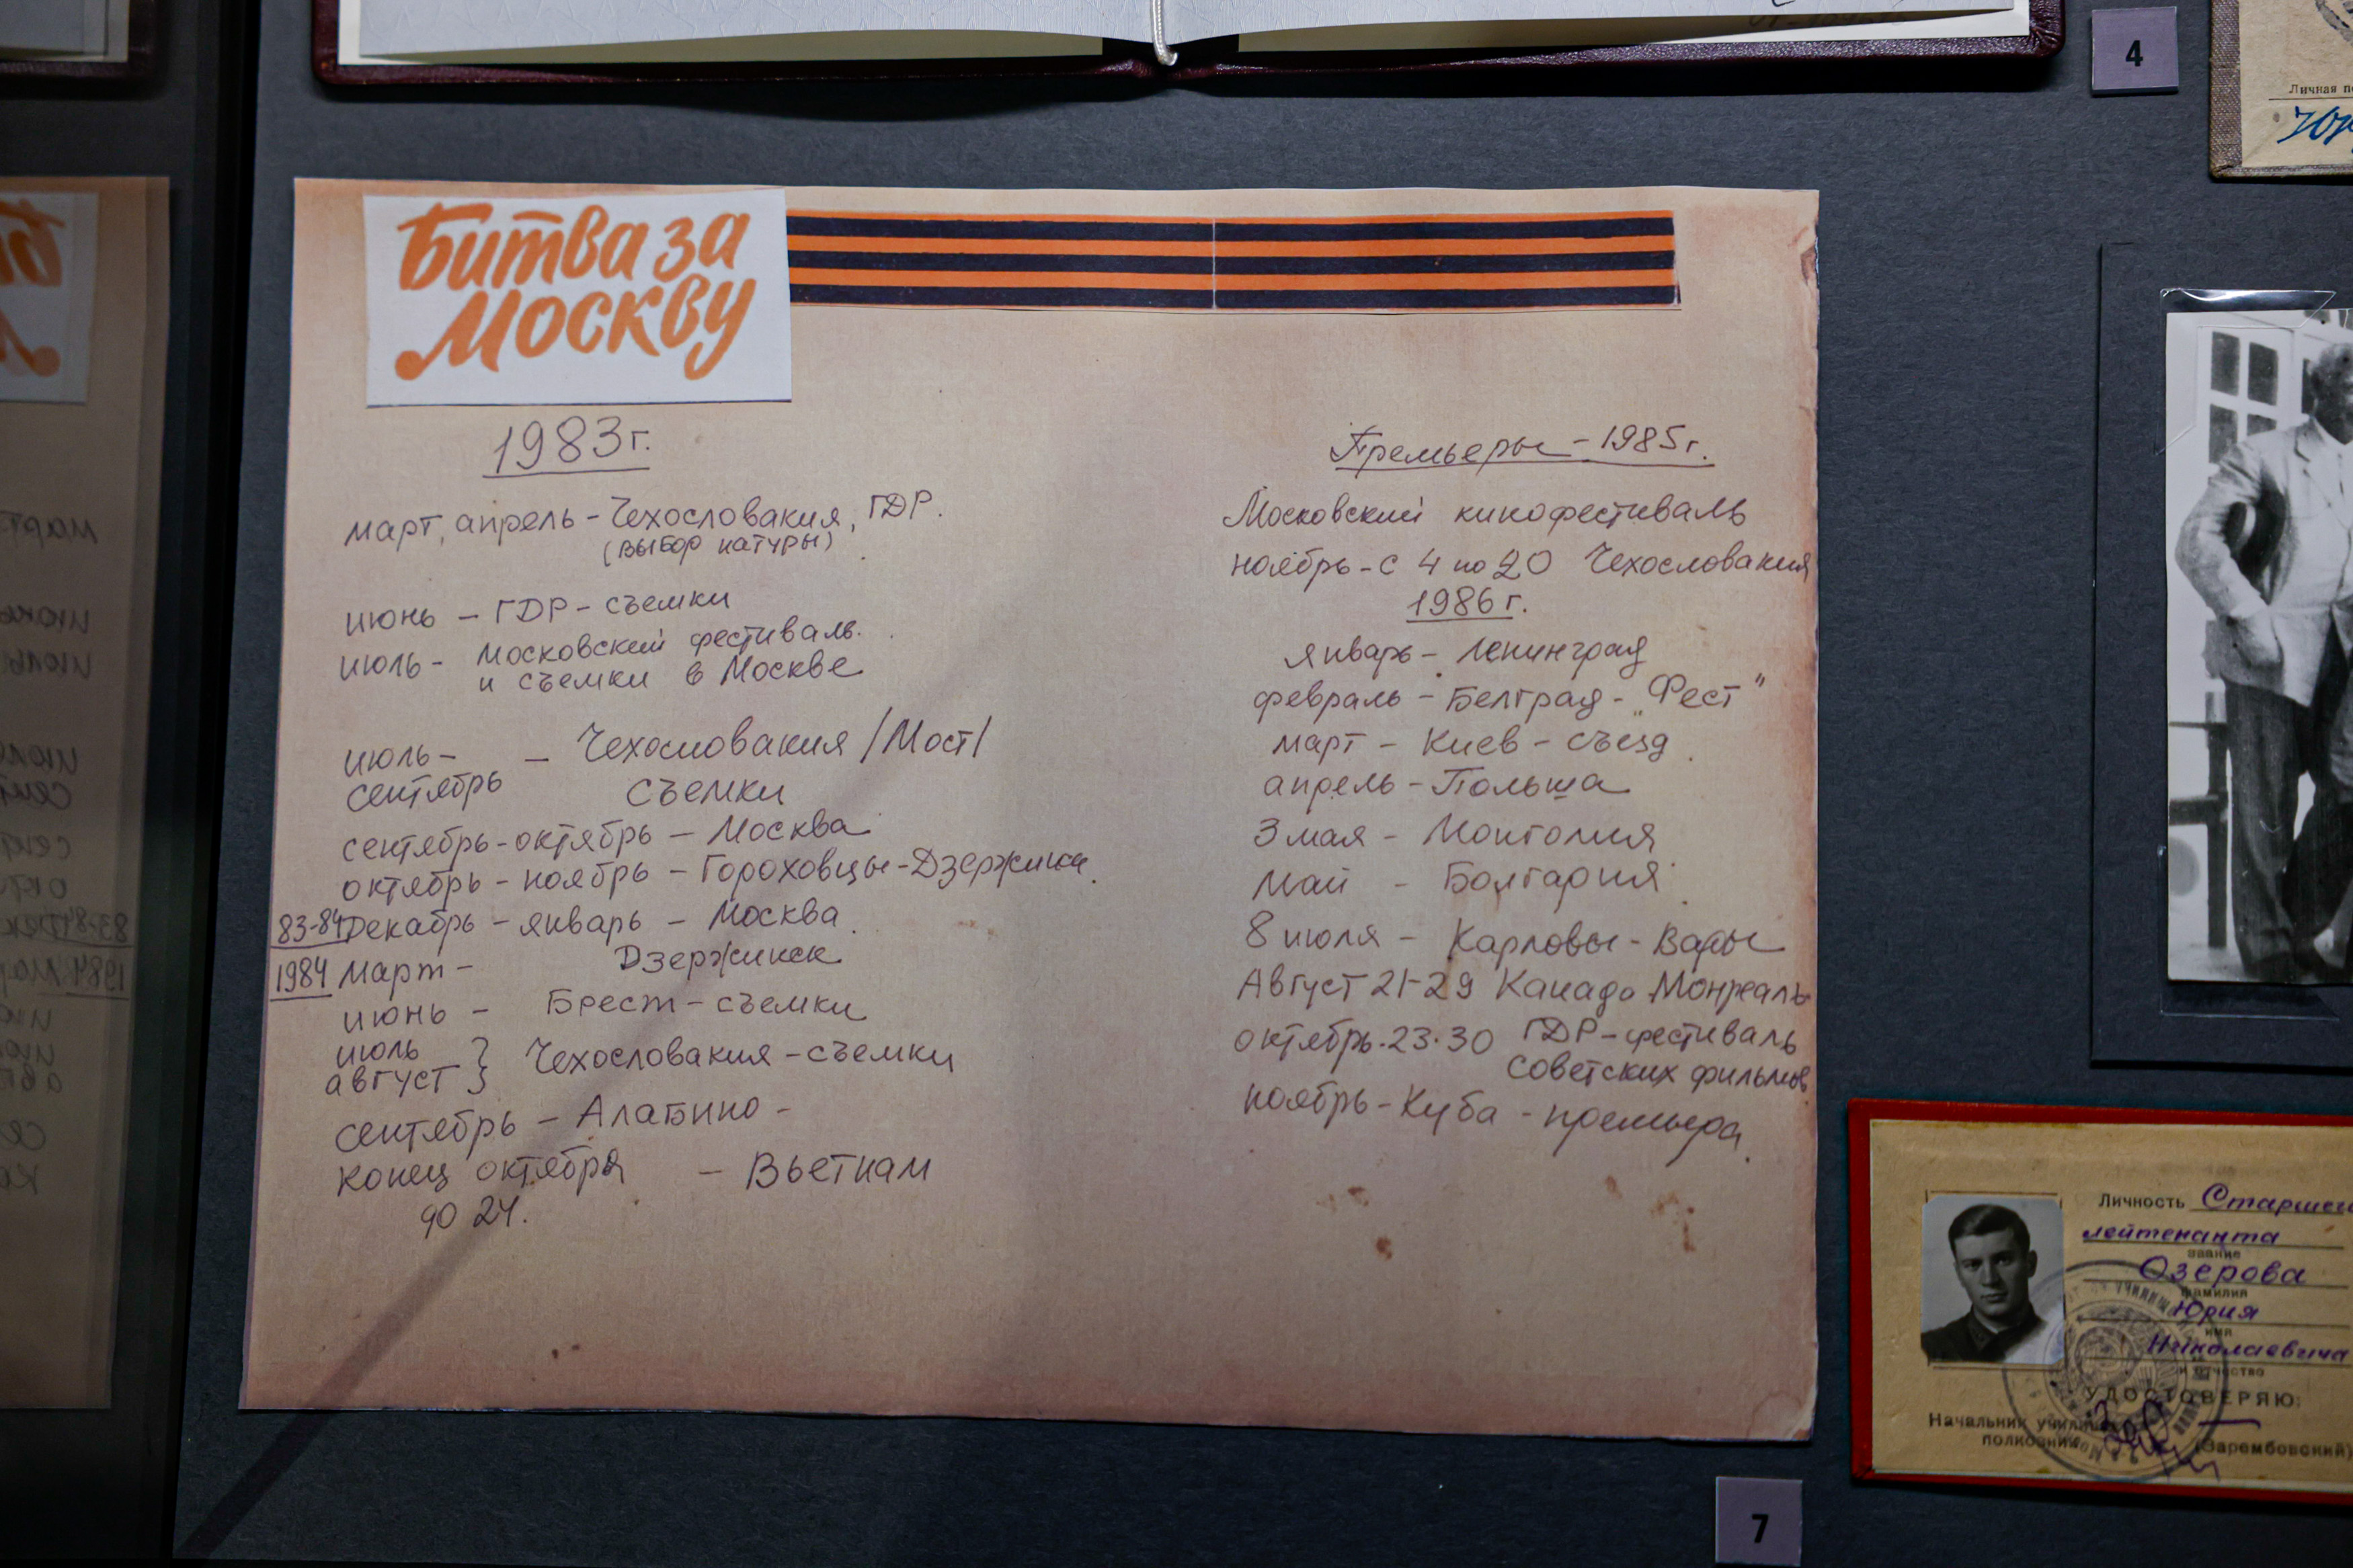 4
Личная
Битва за
Москву
1983 г.
март, апрель - Чехословакия, ГДР.
(выбор натуры)
июнь - ГДР - съемки
июль - Московский фестиваль.
и съемки в Москве
июль - - Чехословакия /Мост/
сентябрь съемки
сентябрь-октябрь - Москва
октябрь - ноябрь - Гороховцы-Дзержинск.
83-84 Декабрь - январь - Москва.
1984 Март - Дзержинск
июнь - Брест - съемки
июль
август } Чехословакия - съемки
сентябрь - Алабино -
конец октября - Вьетнам
до 24.
Премьеры - 1985 г.
Московский кинофестиваль
ноябрь - с 4 по 20 Чехословакия
1986 г.
январь - Ленинград
февраль - Белград - „Фест"
март - Киев - съезд.
апрель - Польша
3 мая - Монголия
Май - Болгария
8 июля - Карловы - Вары
Август 21-29 Канада Монреаль
октябрь. 23.30 ГДР - фестиваль
советских фильмов
ноябрь - Куба - премьера.
Личность Старшего
лейтенанта
звание
Озерова
фамилия
Юрия
имя
Николаевича
и отчество
УДОСТОВЕРЯЮ:
Начальник училища
полковник (Зарембовский)
7